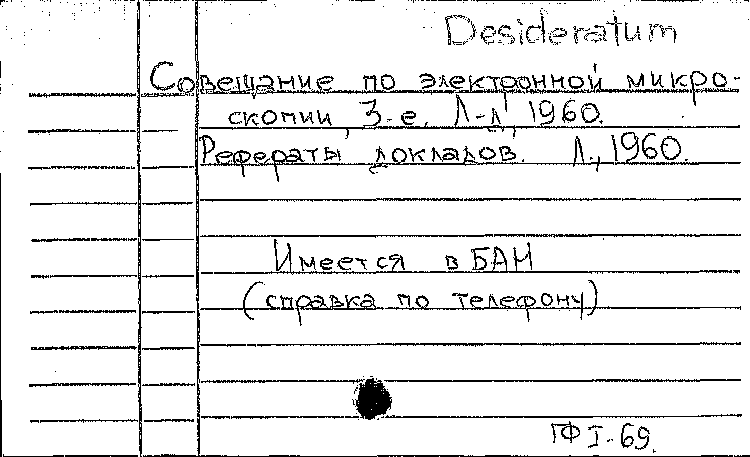 Desideratum
Совещание по электронной микро-
скопии, 3-е. Л-д, 1960.
Рефераты докладов. Л., 1960.
Имеется в БАН
(справка по телефону)
ГФ I-69.